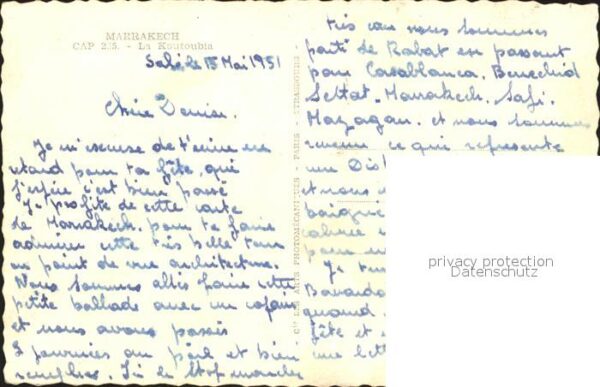 MARRAKECH
CAP 2.5. - La Koutoubia
Salé, le 15 Mai 1951
Chère Denise.
Je m'excuse de t'écrire en
retard pour ta fête, qui
j'espère c'est bien passé
Je profite de cette carte
de Marrakech. pour te faire
admirer cette très belle tour
au point de vue architecture.
Nous sommes allés faire cette
petite ballade avec un copain
et nous avons passés
2 journées au poil et bien
remplies. Ici le
très cas nous sommes
parti de Rabat en passant
pour Casablanca. Berrechid
Settat. Marrakech. Safi.
Mazagan. et nous sommes
revenu ce qui represente
un Dist
et nous
baigne
pour
Je
Bavarda
quand
fête et
une lett
Cie LES ARTS PHOTOMÉCANIQUES - PARIS - STRASBOURG
privacy protection
Datenschutz